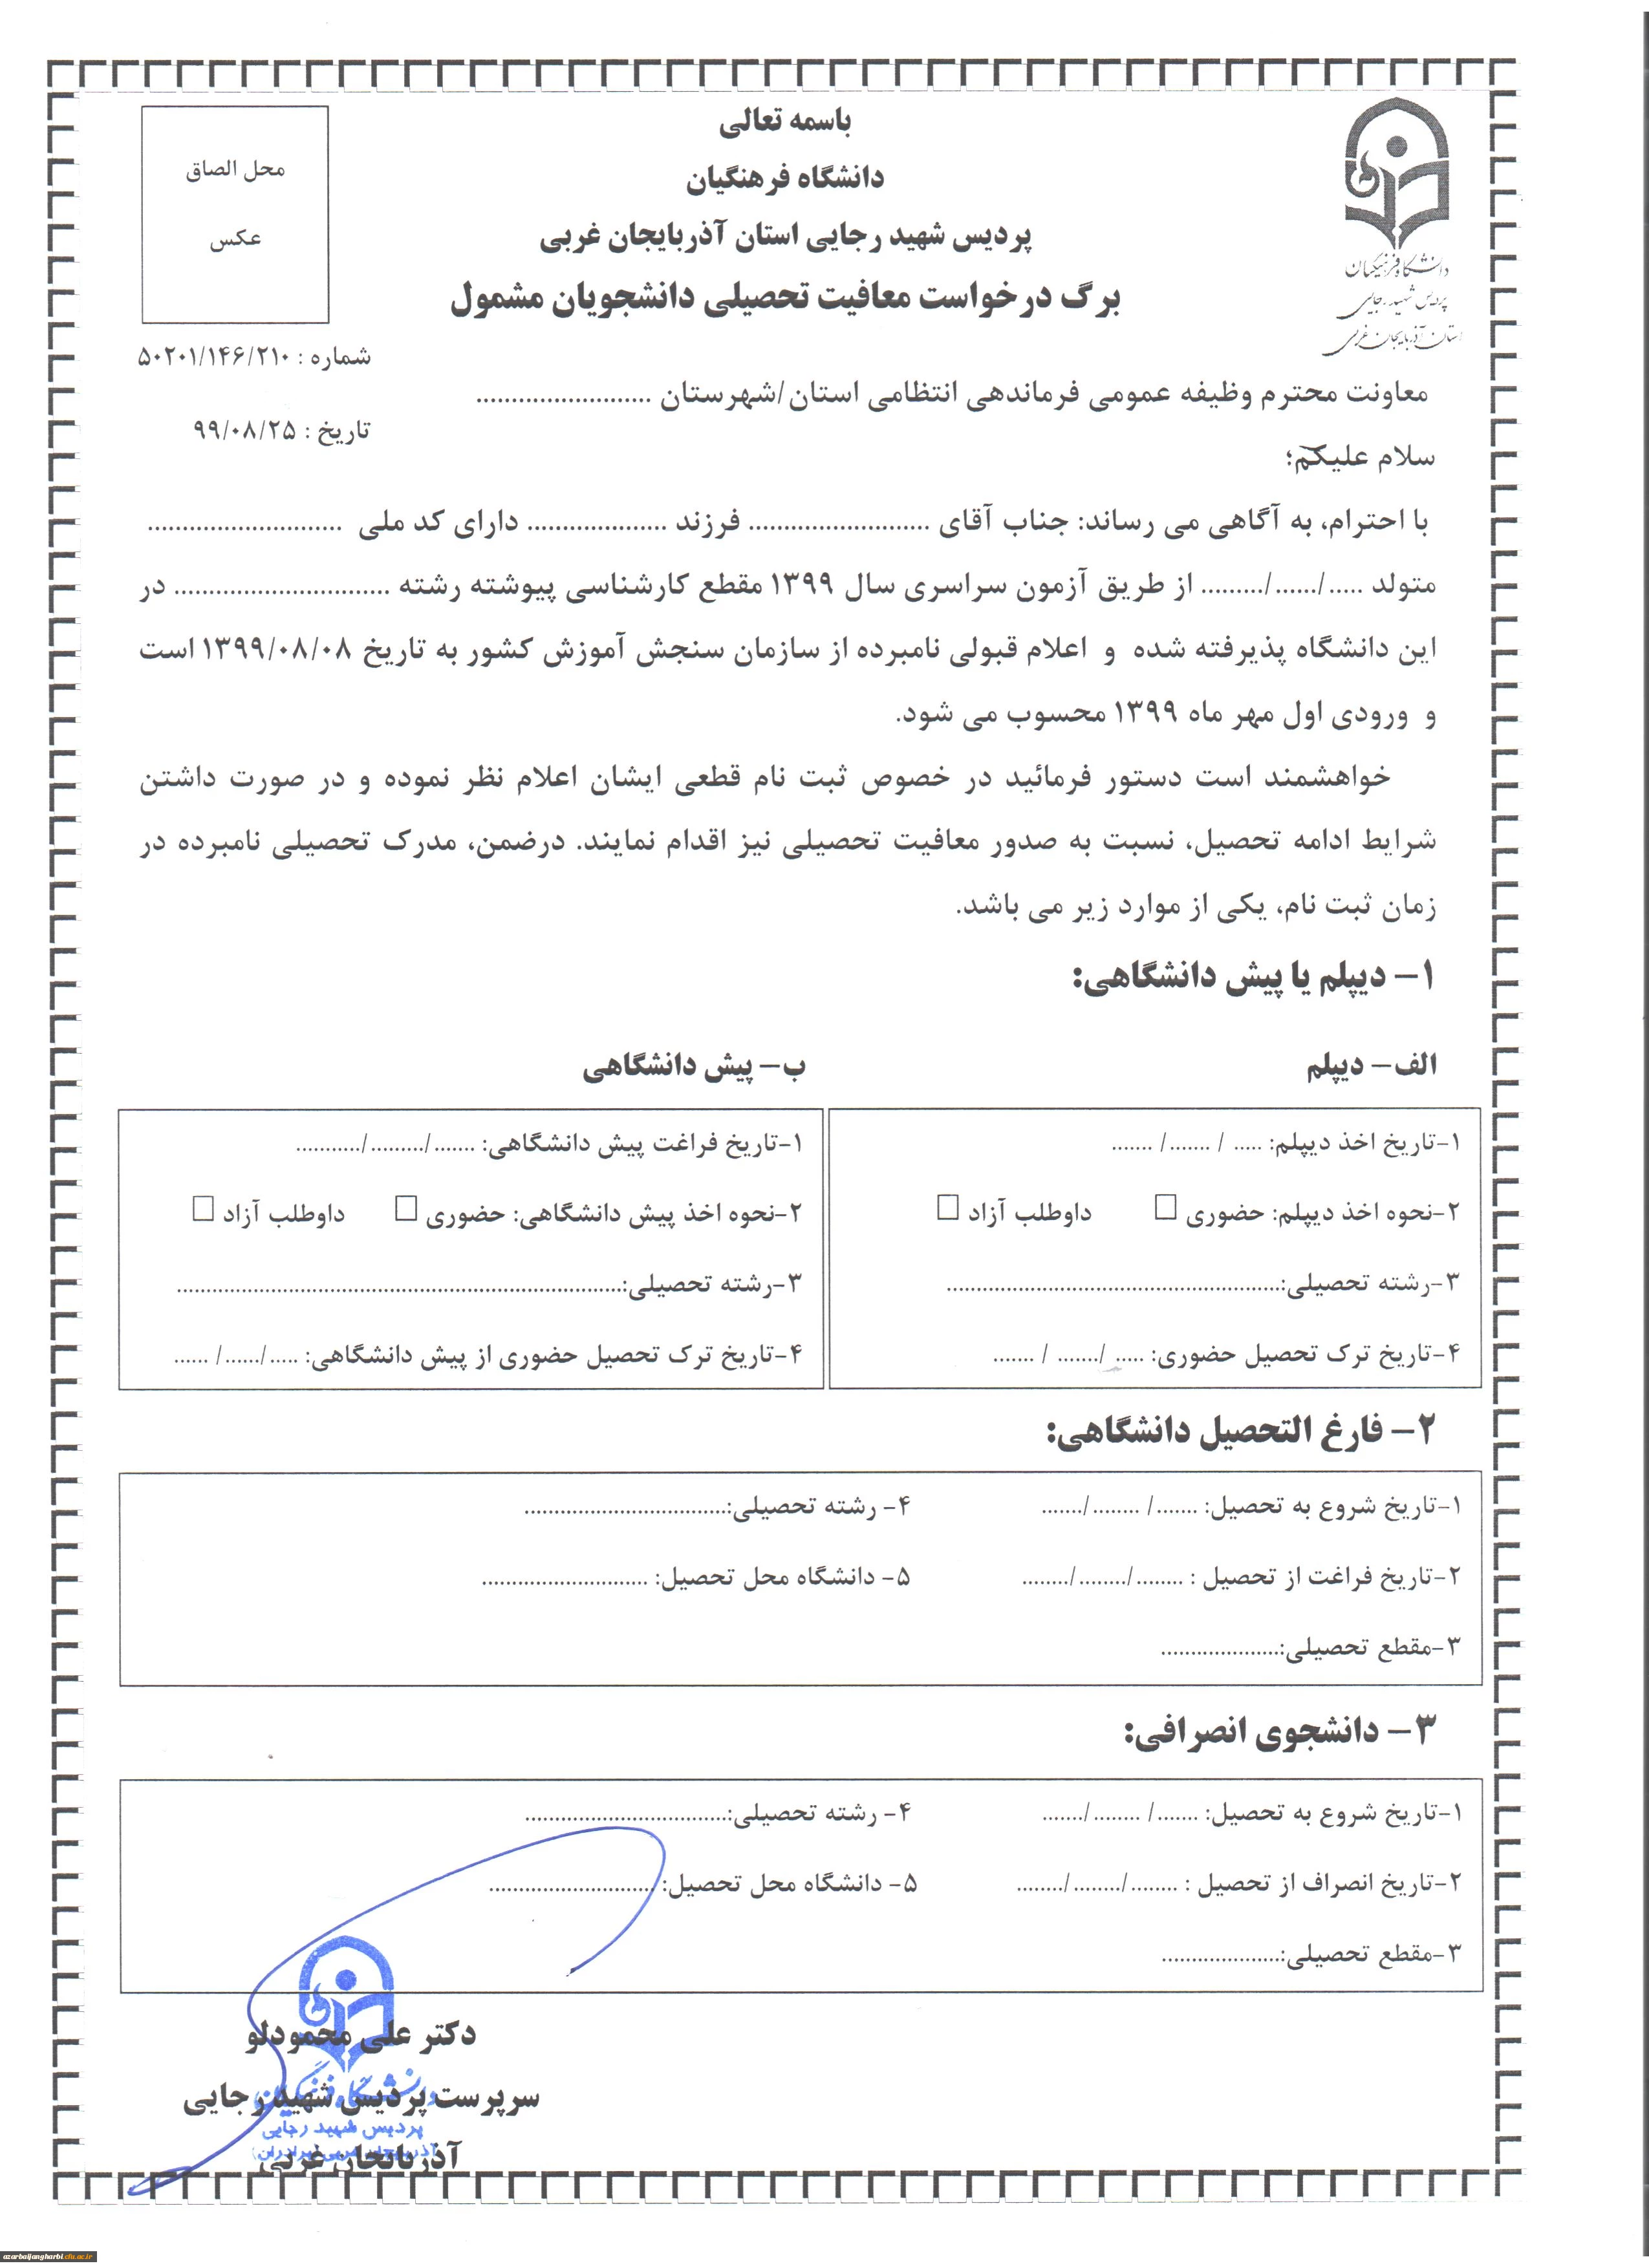 باسمه تعالی
دانشگاه فرهنگیان
پردیس شهید رجایی استان آذربایجان غربی
برگ درخواست معافیت تحصیلی دانشجویان مشمول
دانشگاه فرهنگیان
پردیس شهید رجایی
استان آذربایجان غربی
محل الصاق
عکس
شماره : ۵۰۲۰۱/۱۴۶/۲۱۰
تاریخ : ۹۹/۰۸/۲۵
معاونت محترم وظیفه عمومی فرماندهی انتظامی استان/شهرستان .........................
سلام علیکم؛
با احترام، به آگاهی می رساند: جناب آقای .......................... فرزند .................... دارای کد ملی ............................
متولد ...../....../......... از طریق آزمون سراسری سال ۱۳۹۹ مقطع کارشناسی پیوسته رشته ............................... در
این دانشگاه پذیرفته شده و اعلام قبولی نامبرده از سازمان سنجش آموزش کشور به تاریخ ۱۳۹۹/۰۸/۰۸ است
و ورودی اول مهر ماه ۱۳۹۹ محسوب می شود.
خواهشمند است دستور فرمائید در خصوص ثبت نام قطعی ایشان اعلام نظر نموده و در صورت داشتن
شرایط ادامه تحصیل، نسبت به صدور معافیت تحصیلی نیز اقدام نمایند. درضمن، مدرک تحصیلی نامبرده در
زمان ثبت نام، یکی از موارد زیر می باشد.
۱- دیپلم یا پیش دانشگاهی:
الف- دیپلم
۱-تاریخ اخذ دیپلم: ..... / ......./ .......
۲-نحوه اخذ دیپلم: حضوری □ داوطلب آزاد □
۳-رشته تحصیلی:.........................................................
۴-تاریخ ترک تحصیل حضوری: ..... /......./ .......
ب- پیش دانشگاهی
۱-تاریخ فراغت پیش دانشگاهی: ......./........./...........
۲-نحوه اخذ پیش دانشگاهی: حضوری □ داوطلب آزاد □
۳-رشته تحصیلی:............................................................................
۴-تاریخ ترک تحصیل حضوری از پیش دانشگاهی: ...../....../ ......
۲- فارغ التحصیل دانشگاهی:
۱-تاریخ شروع به تحصیل: ......./ ......../....... ۴- رشته تحصیلی:..................................
۲-تاریخ فراغت از تحصیل : ......../......../........ ۵- دانشگاه محل تحصیل: ............................
۳-مقطع تحصیلی:....................
۳- دانشجوی انصرافی:
۱-تاریخ شروع به تحصیل: ......./ ......../....... ۴- رشته تحصیلی:..................................
۲-تاریخ انصراف از تحصیل : ......../......../........ ۵- دانشگاه محل تحصیل: ............................
۳-مقطع تحصیلی:....................
دکتر علی محمودلو
سرپرست پردیس شهید رجایی
آذربایجان غربی
دانشگاه فرهنگیان
پردیس شهید رجایی
azarbaijangharbi.cfu.ac.ir